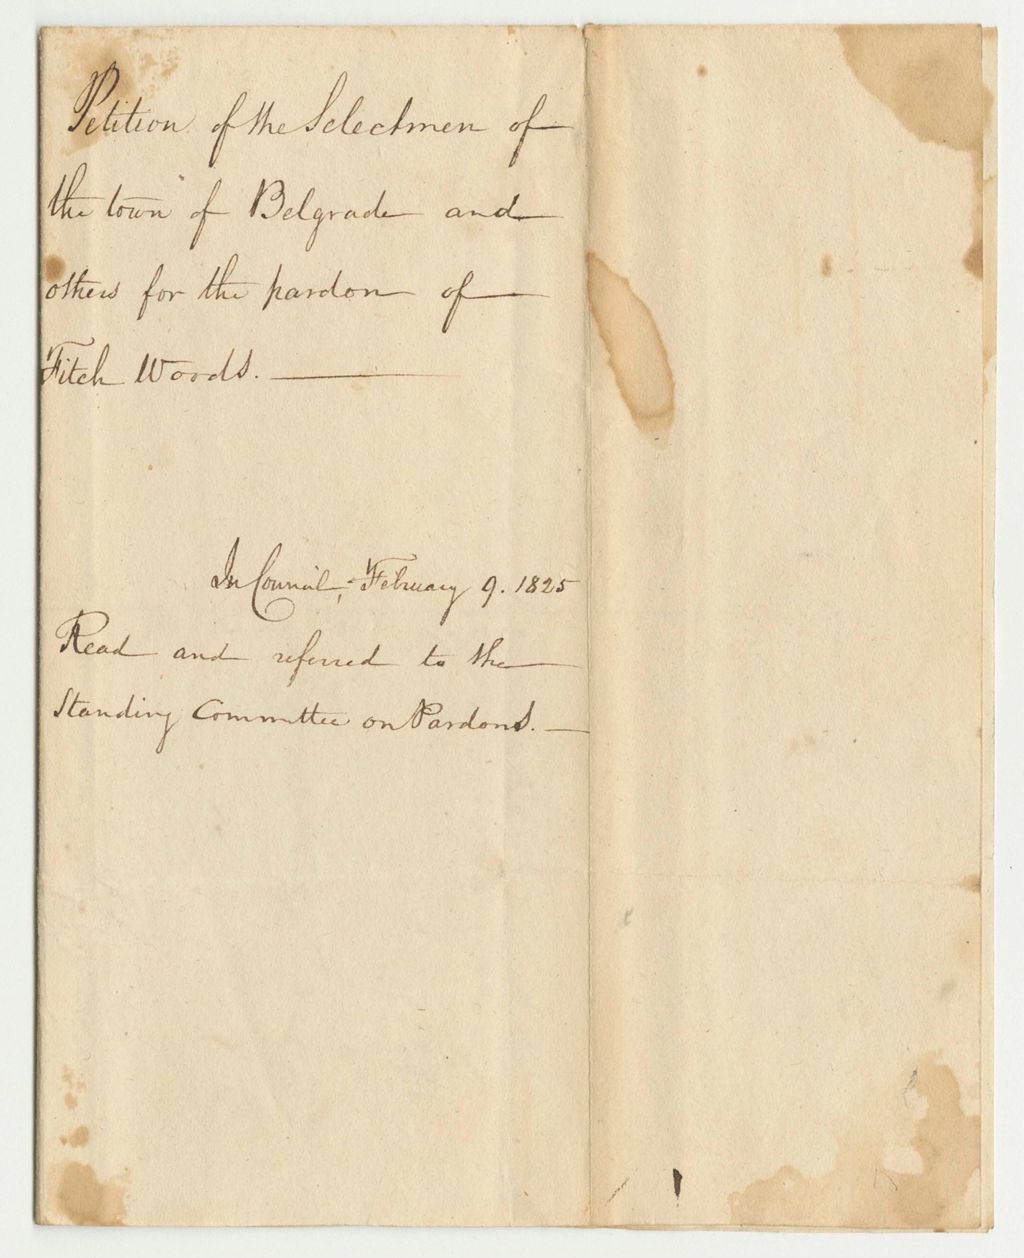 Petition of the Selectmen of
the town of Belgrade and
others for the pardon of
Fitch Woods.
In Council, February 9. 1825
Read and referred to the
Standing Committee on Pardons.